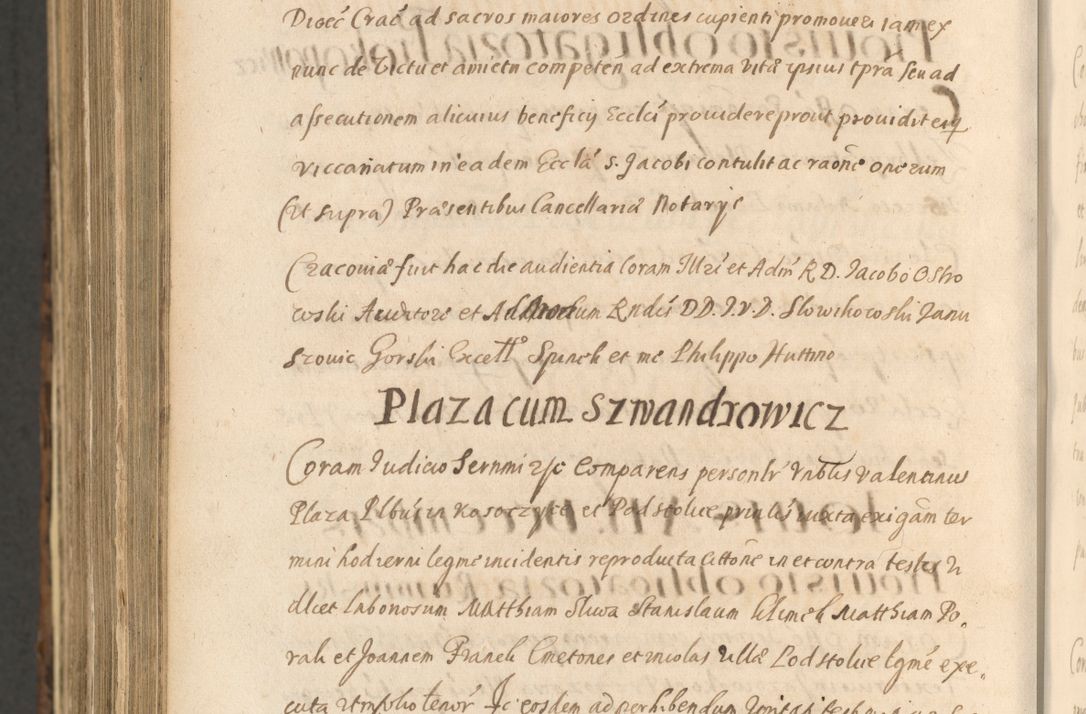 Dioeć Crać ad sacros maiores ordines cupienti promoveri iam ex
nunc de victu et amictu competeń ad extrema vitæ ipsius tpra seu ad
assecutionem alicuius beneficij Eccleí providere prout providit eiq
viccariatum in eadem Eccla S. Jacobi contulit ac raone onerum
(ut supra) Præsentibus Cancellariæ Notarijs
Cracoviæ fuit hac die audientia Coram Illri et Adm R D. Jacobo Ostro
woski Auditore et Rndis DD. J.V.D. Slowikowski Janu
szovic Gorski Excell Spinek et me Philippo Huttino
Plaza cum Szwandrowicz
Coram Judicio Sernmi comparens personlr Valentinus
Plaza in Kosoczyce et Podstolice iuxta exigam ter
mini hodierni legme incidentis reproducta Cittone in et contra testes vi
dlcet Laboriosum Matthiam Sliwa Stanislaum Klimek Matthiam Po.
rali et Joannem Franek Cmetones et incolas villæ Podstolice lgme exe.
cuta eosdem ad perhibendum